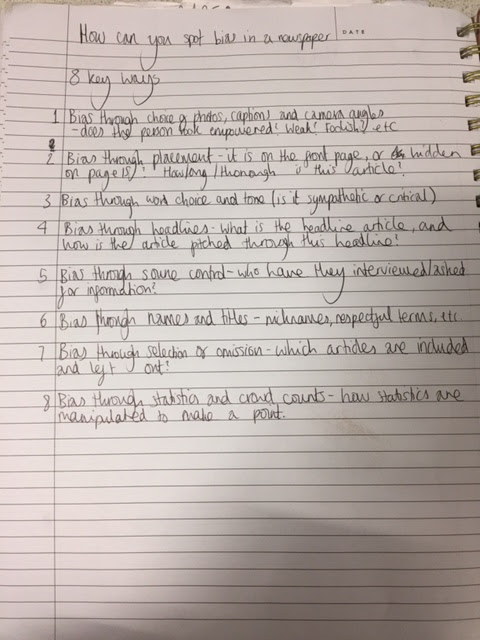 How can you spot bias in a newspaper
DATE
8 key ways
1 Bias through choice of photos, captions and camera angles
- does the person look empowered? Weak? Foolish? etc
2 Bias through placement - it is on the front page, or hidden
on page 15? How long/thorough is this article?
3 Bias through word choice and tone (is it sympathetic or critical)
4 Bias through headlines - what is the headline article, and
how is the article pitched through this headline?
5 Bias through source control - who have they interviewed/asked
for information?
6 Bias through names and titles - nicknames, respectful terms, etc.
7 Bias through selection or omission - which articles are included
and left out?
8 Bias through statistics and crowd counts - how statistics are
manipulated to make a point.